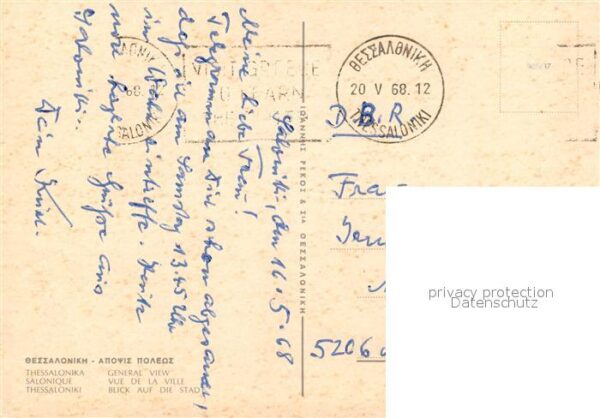 Saloniki, den 16.5.68
Meine liebe Frau!
Telegramm an Dich schon abgesandt,
daß ich am Samstag 13.45 Uhr
in eintreffe. Heute
noch herzliche Grüße aus
Saloniki.
Dein
ΘΕΣΣΑΛΟΝΙΚΗ
20 V 68.12
THESSALONIKI
VISIT GREECE
D.B.R
Frau
5206
ΙΩΑΝΝΗΣ ΡΕΚΟΣ & ΣΙΑ ΘΕΣΣΑΛΟΝΙΚΗ
privacy protection
Datenschutz
ΘΕΣΣΑΛΟΝΙΚΗ - ΑΠΟΨΙΣ ΠΟΛΕΩΣ
THESSALONIKA GENERAL VIEW
SALONIQUE VUE DE LA VILLE
THESSALONIKI BLICK AUF DIE STADT